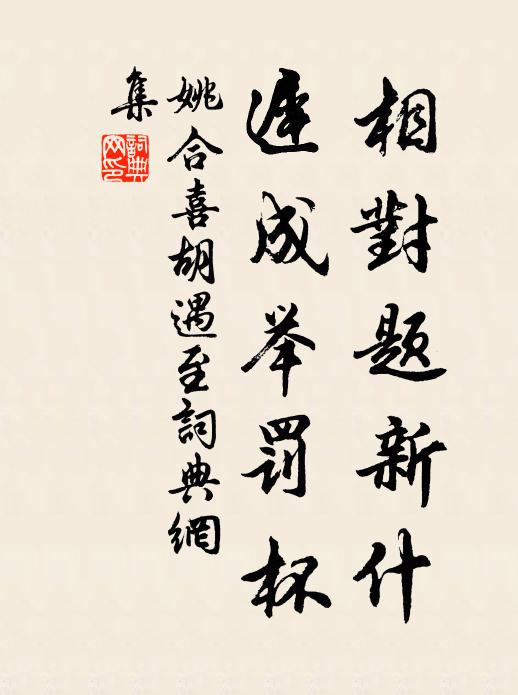 相對題新什
遲成举罰杯
姚合喜胡遇至詞典網
集
詞典網印